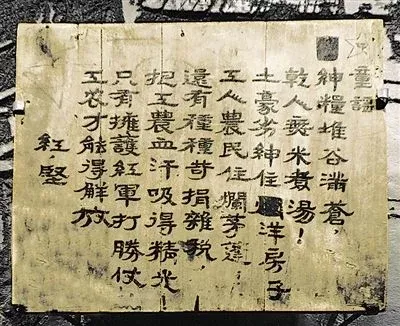 童謠
紳糧堆谷滿蒼，
乾人米煮湯！
土豪劣紳住洋房子
工人農民住爛茅蓬，
還有種種苛捐雜稅，
把工農血汗吸得精光
只有擁護紅軍打勝仗，
工农才能得解放
紅·堅